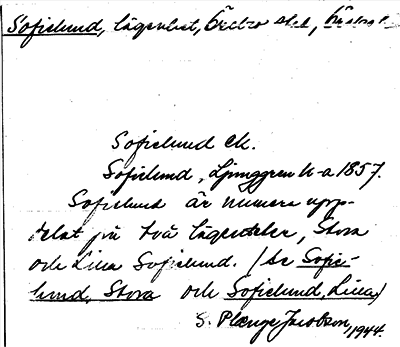 Sofielund, lägenhet, Örebro
Sofielund ek.
Sofielund, Ljunggren k-a 1857.
Sofielund är numera upp-
delat på två lägenheter, Stora
och Lilla Sofielund. (Se Sofie-
lund, Stora och Sofielund, Lilla)
S. Plænge Jacobson, 1944.